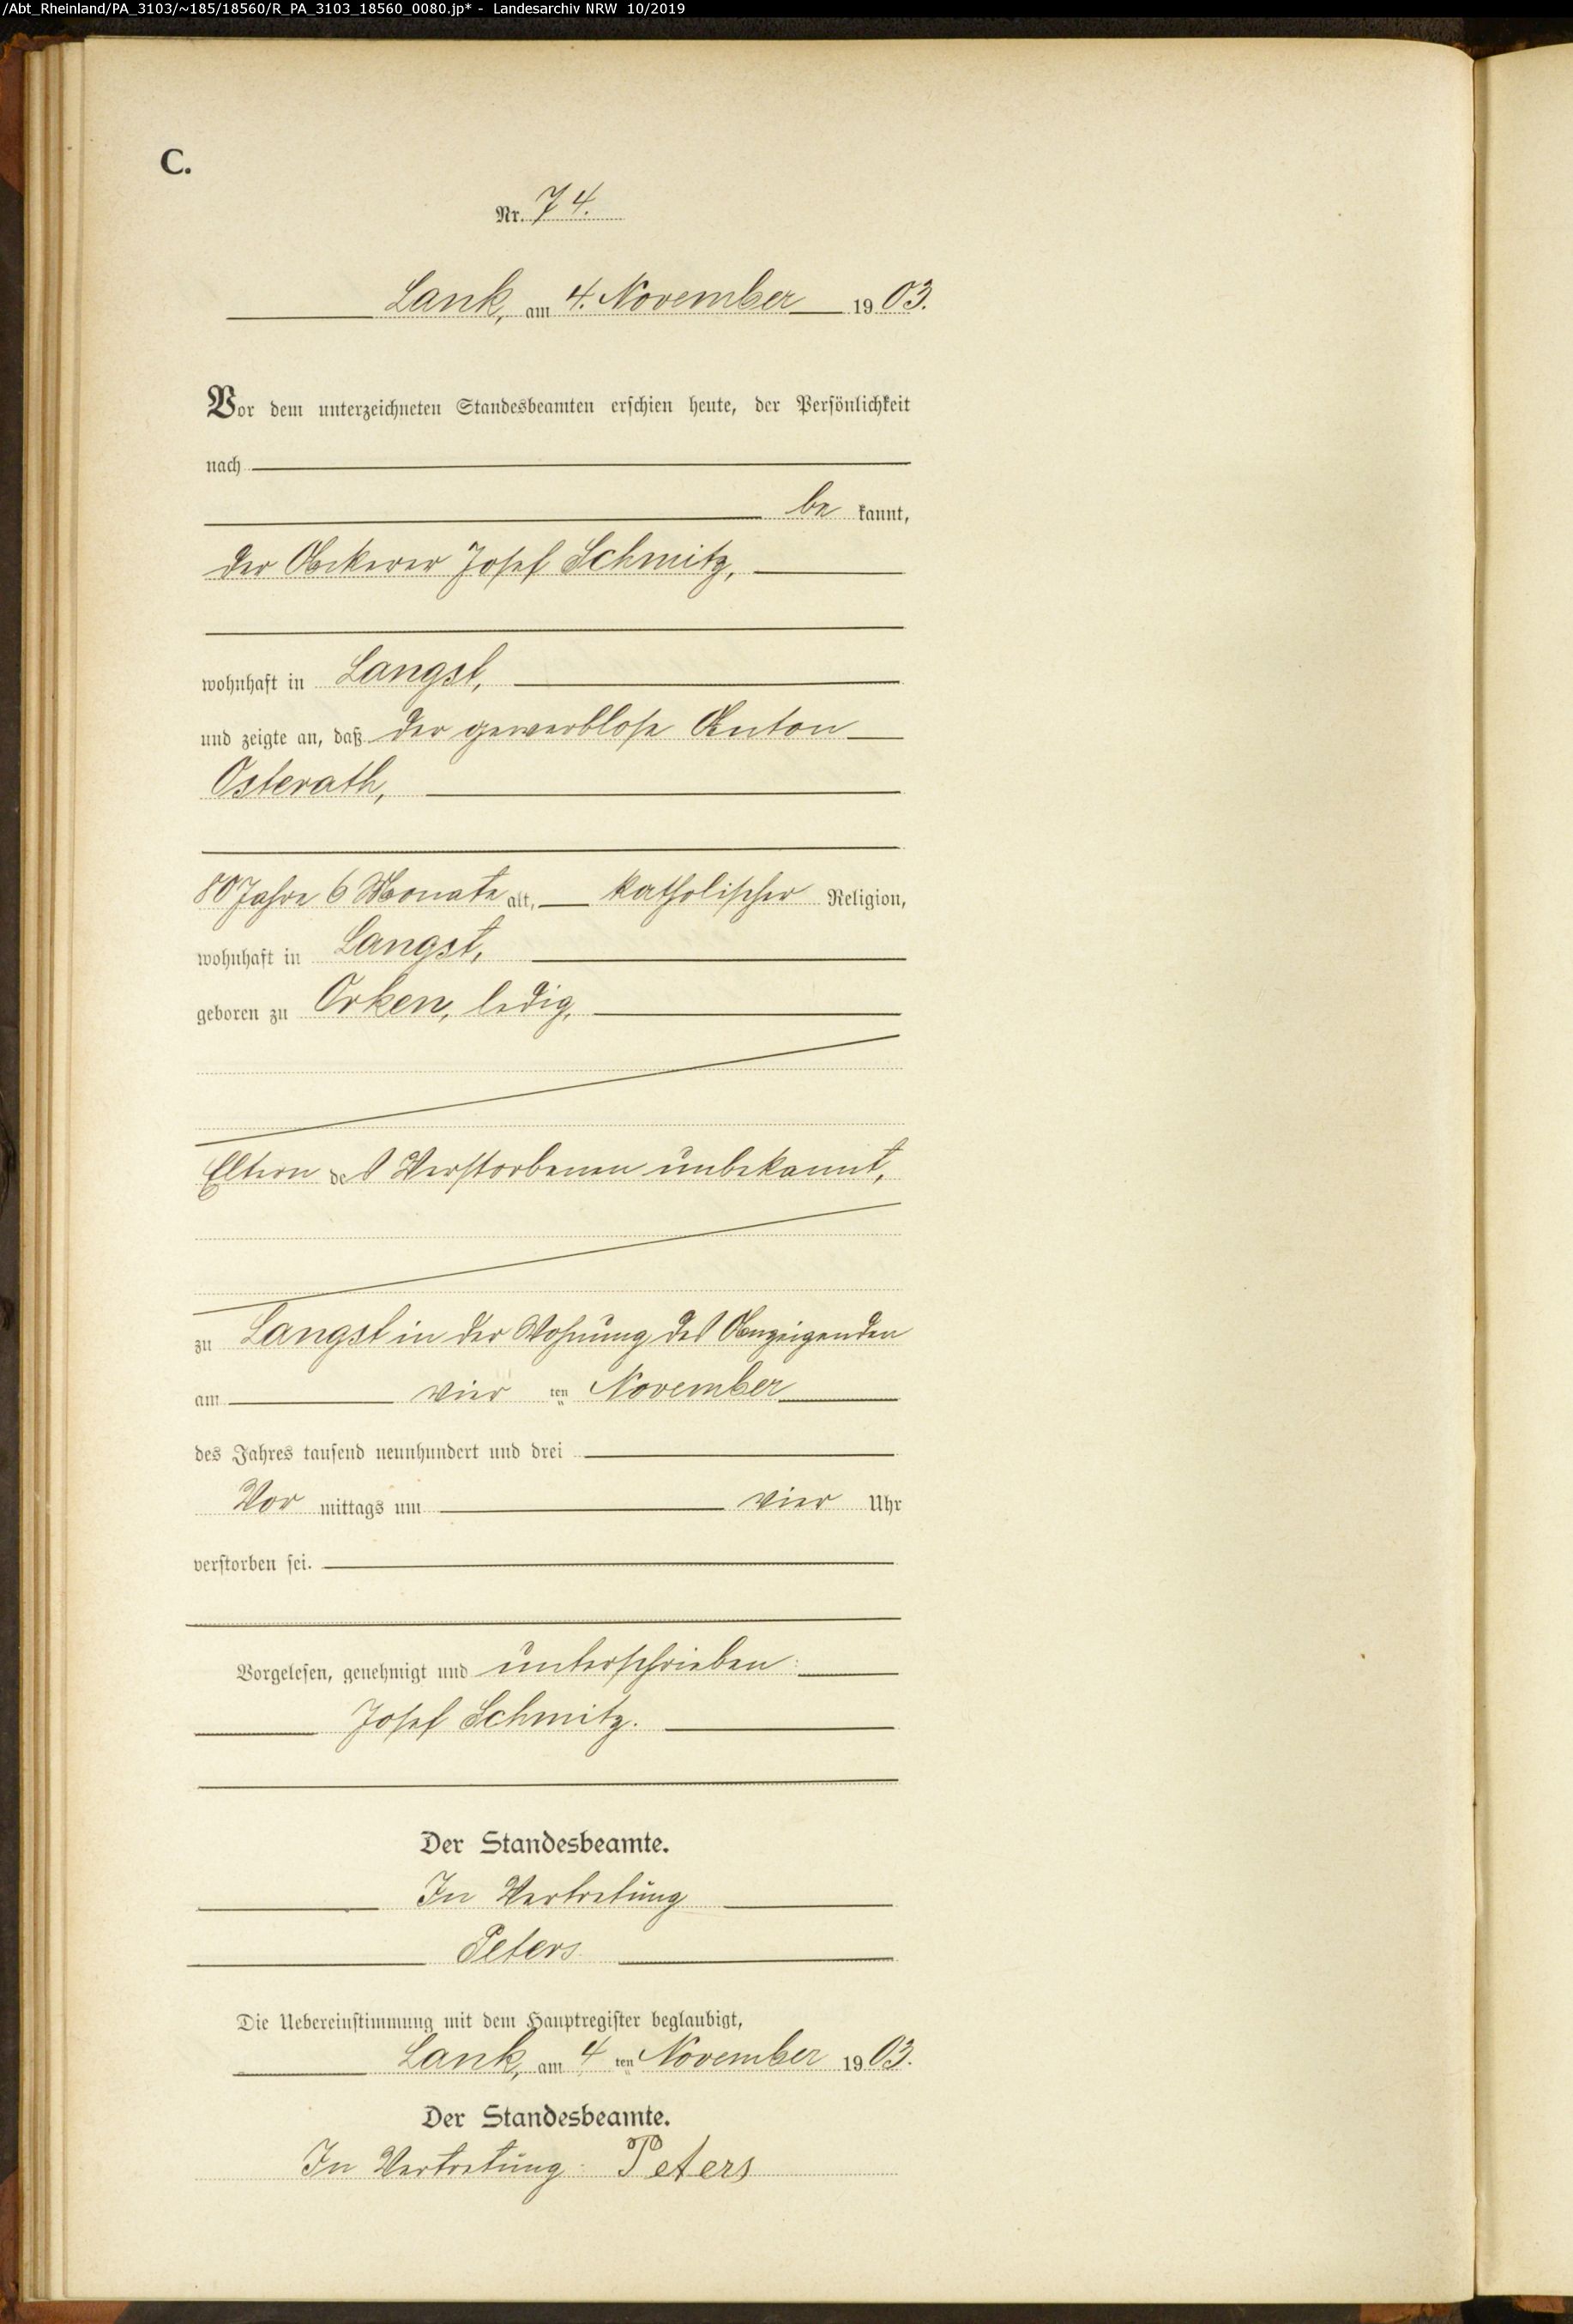 /Abt_Rheinland/PA_3103/~185/18560/R_PA_3103_18560_0080.jp* - Landesarchiv NRW 10/2019
C.
Nr. 74.
Lank, am 4. November 1903.
Vor dem unterzeichneten Standesbeamten erschien heute, der Persönlichkeit
nach
be kannt,
der Ackerer Josef Schmitz,
wohnhaft in Langst,
und zeigte an, daß der gewerblose Anton
Osterath,
80 Jahre 6 Monate alt, katholischer Religion,
wohnhaft in Langst,
geboren zu Orken, ledig,
Eltern des Verstorbenen unbekannt,
zu Langst in der Wohnung des Anzeigenden
am vier ten November
des Jahres tausend neunhundert und drei
Vor mittags um vier Uhr
verstorben sei.
Vorgelesen, genehmigt und unterschrieben:
Josef Schmitz.
Der Standesbeamte.
In Vertretung
Peters
Die Uebereinstimmung mit dem Hauptregister beglaubigt,
Lank, am 4 ten November 1903.
Der Standesbeamte.
In Vertretung: Peters